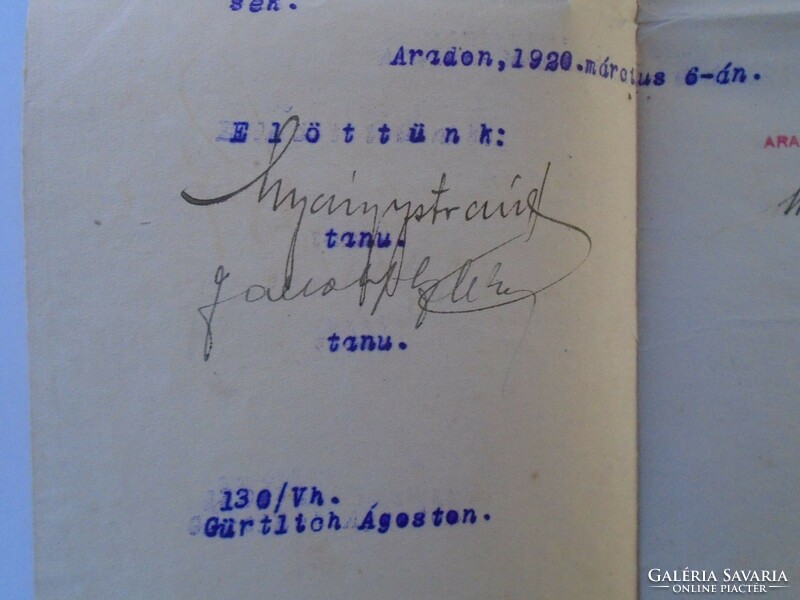 sek.
Aradon, 1920. március 6-án.
Előttünk:
ARA
tanu.
tanu.
130/Vh.
Gürtlich Ágoston.
GALÉRIA SAVARIA
ONLINE PIACTÉR